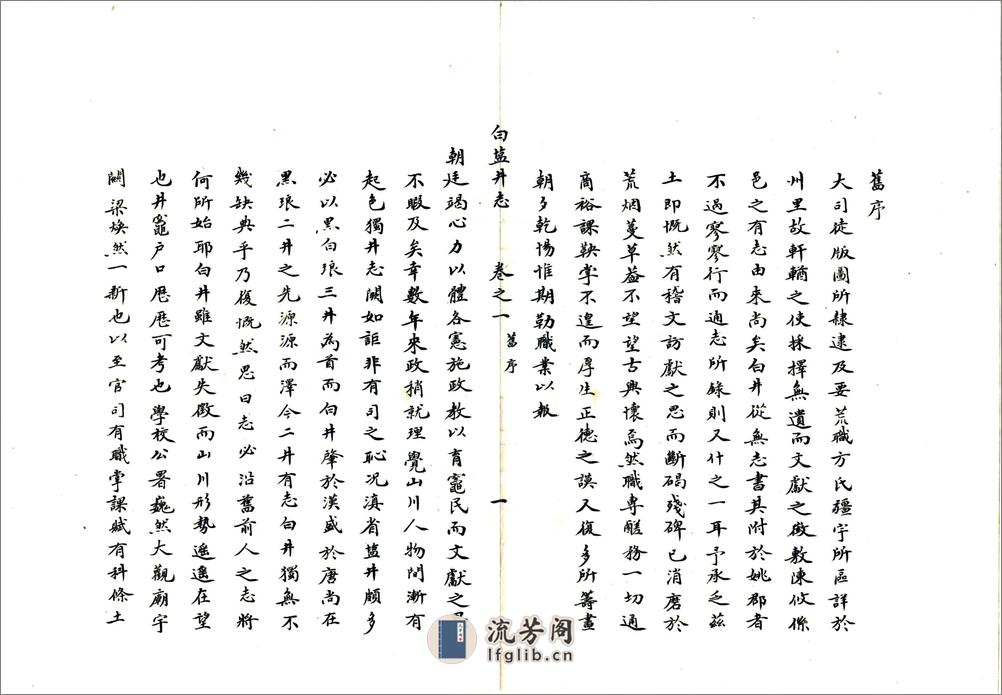 舊序
大司徒版圖所隸逮及要荒職方氏疆宇所區詳於
州里故軒輶之使採擇無遺而文獻之徵敷陳攸係
邑之有志由來尚矣白井從無志書其附於姚郡者
不過寥寥行而通志所錄則又什之一耳予承乏茲
土即慨然有稽文訪獻之思而斷碣殘碑已消磨於
荒烟蔓草葢不望望古興懷焉然職專醝務一切通
商裕課鞅掌不遑而厚生正德之謨又復多所籌畫
朝夕乾惕惟期勤職業以報
白鹽井志 卷之一 舊序 一
朝廷竭心力以體各憲施政教以育竈民而文獻之
不暇及矣幸數年來政稍就理覺山川人物間漸有
起色獨井志闕如詎非有司之恥况滇省鹽井頗多
必以黑白琅三井為首而白井肇於漢盛於唐尚在
黑琅二井之先源源而澤今二井有志白井獨無不
幾缺典乎乃復慨然思曰志必沿舊前人之志將
何所始耶白井雖文獻失徵而山川形勢遥遥在望
也井竈户口歷歷可考也學校公署巍然大觀廟宇
關梁煥然一新也以至官司有職掌課賦有科條土
流芳阁
lfglib.cn